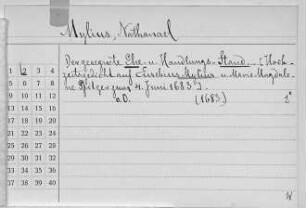 Mylius, Nathanael
Der gesegnete Ehe- u. Handlungs-Stand. [Hoch-
zeitsgedicht auf Mylius u. Marie Magdale-
ne zum 4. Juni 1683].
o.O. (1683) 2°
1 2 3 4
5 6 7 8
9 10 11 12
13 14 15 16
17 18 19 20
21 22 23 24
25 26 27 28
29 30 31 32
33 34 35 36
37 38 39 40